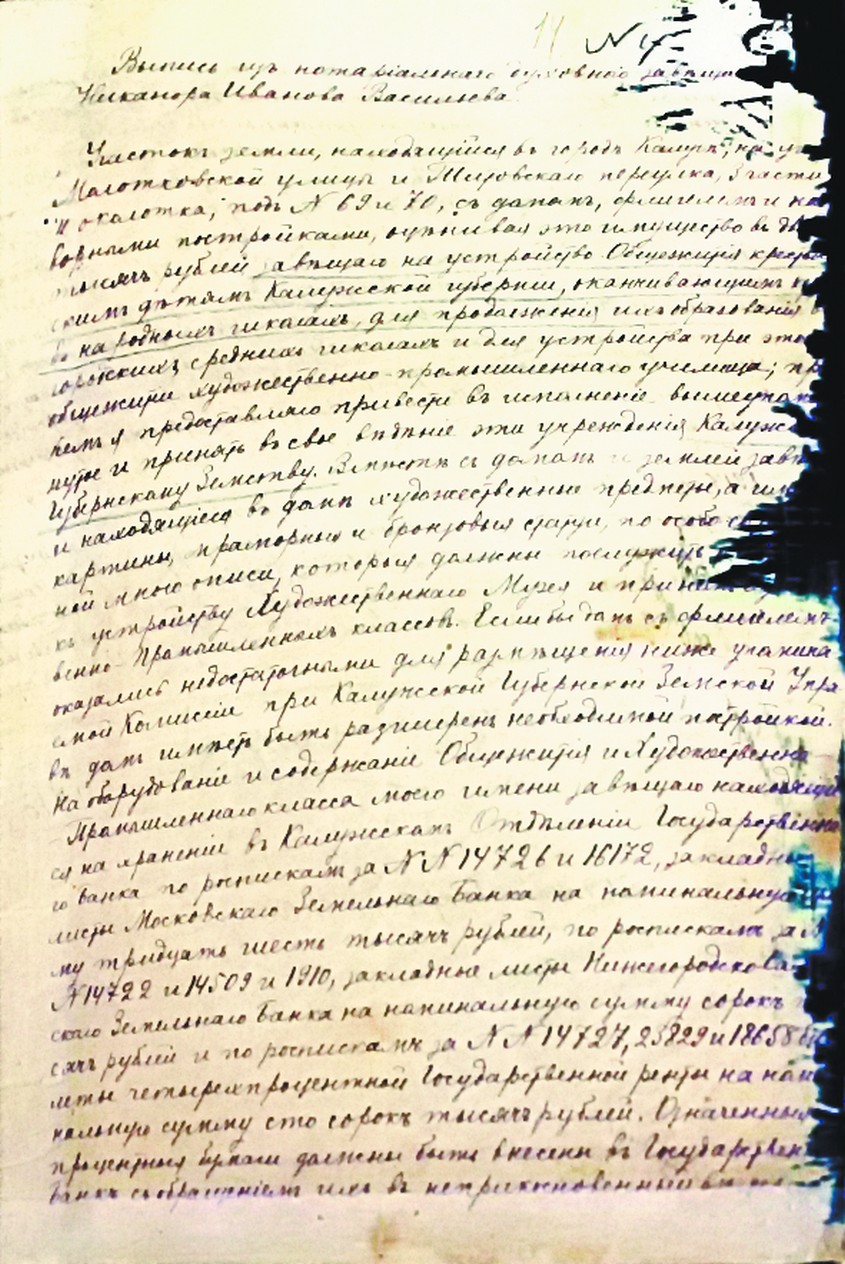 11 N 4
Выпись изъ нотаріальнаго духовнаго завѣща
Никанора Иванова Васильева.
Участокъ земли, находящійся въ городѣ Калугѣ, на уг
Молотковской улицы и Жировскаго переулка, 3 части
11 околотка, подъ N 69 и 70, съ домомъ, флигелемъ и на
ворными постройками, оцѣнивая это имущество въ дв
тысячъ рублей завѣщаю на устройство Общежитія кресть
скимъ дѣтямъ Калужской губерніи, оканчивающимъ к
въ народныхъ школахъ, для продолженія ихъ образованія в
городскихъ среднихъ школахъ и для устройства при это
общежитіи художественно-промышленнаго училища; пр
чемъ я предоставляю привести въ исполненіе вышеупомя
нутые и принять въ свое вѣдѣніе эти учрежденія Калужс
Губернскому Земству. Вмѣстѣ съ домомъ и землей завѣ
и находящіеся въ домѣ художественные предметы, а им
картины, мраморныя и бронзовыя статуи, по особо со
ной мною описи, которыя должны послужить
къ устройству Художественнаго Музея и при
венно-Промышленномъ классѣ. Если бы домъ съ флигелемъ
оказались недостаточными для размѣщенія ниже упомина
емой Комиссіи при Калужской Губернской Земской Упра
въ домъ имѣетъ быть расширенъ необходимой постройкой.
На оборудованіе и содержаніе Общежитія и Художественно
Промышленнаго класса моего имени завѣщаю находящія
ся на храненіи въ Калужскомъ Отдѣленіи Государственна
го банка по роспискамъ за N N 14726 и 16172, закладные
листы Московскаго Земельнаго Банка на номинальную су
му тридцать шесть тысячъ рублей, по роспискамъ за N
N 14722 и 14509 и 1910, закладные листы Нижегородско Са
скаго Земельнаго Банка на номинальную сумму сорокъ т
сячъ рублей и по роспискамъ за N N 14727, 23829 и 18658 би
леты четырехпроцентной Государственной ренты на номи
нальную сумму сто сорокъ тысячъ рублей. Означенныя
процентныя бумаги должны быть внесены въ Государствен
банкъ съ обращеніемъ ихъ въ неприкосновенный